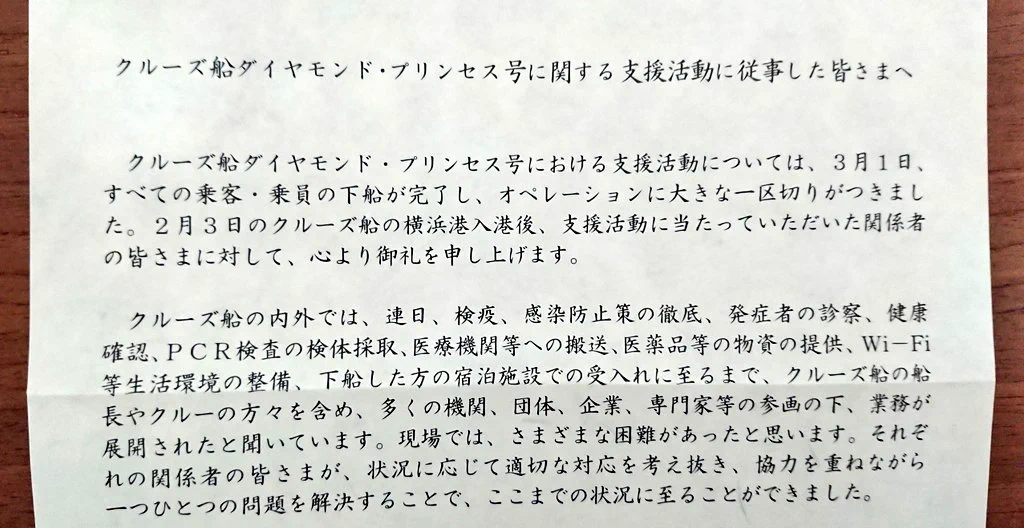 クルーズ船ダイヤモンド・プリンセス号に関する支援活動に従事した皆さまへ
クルーズ船ダイヤモンド・プリンセス号における支援活動については、３月１日、
すべての乗客・乗員の下船が完了し、オペレーションに大きな一区切りがつきまし
た。２月３日のクルーズ船の横浜港入港後、支援活動に当たっていただいた関係者
の皆さまに対して、心より御礼を申し上げます。
クルーズ船の内外では、連日、検疫、感染防止策の徹底、発症者の診察、健康
確認、ＰＣＲ検査の検体採取、医療機関等への搬送、医薬品等の物資の提供、Wi－Fi
等生活環境の整備、下船した方の宿泊施設での受入れに至るまで、クルーズ船の船
長やクルーの方々を含め、多くの機関、団体、企業、専門家等の参画の下、業務が
展開されたと聞いています。現場では、さまざまな困難があったと思います。それぞ
れの関係者の皆さまが、状況に応じて適切な対応を考え抜き、協力を重ねながら
一つひとつの問題を解決することで、ここまでの状況に至ることができました。